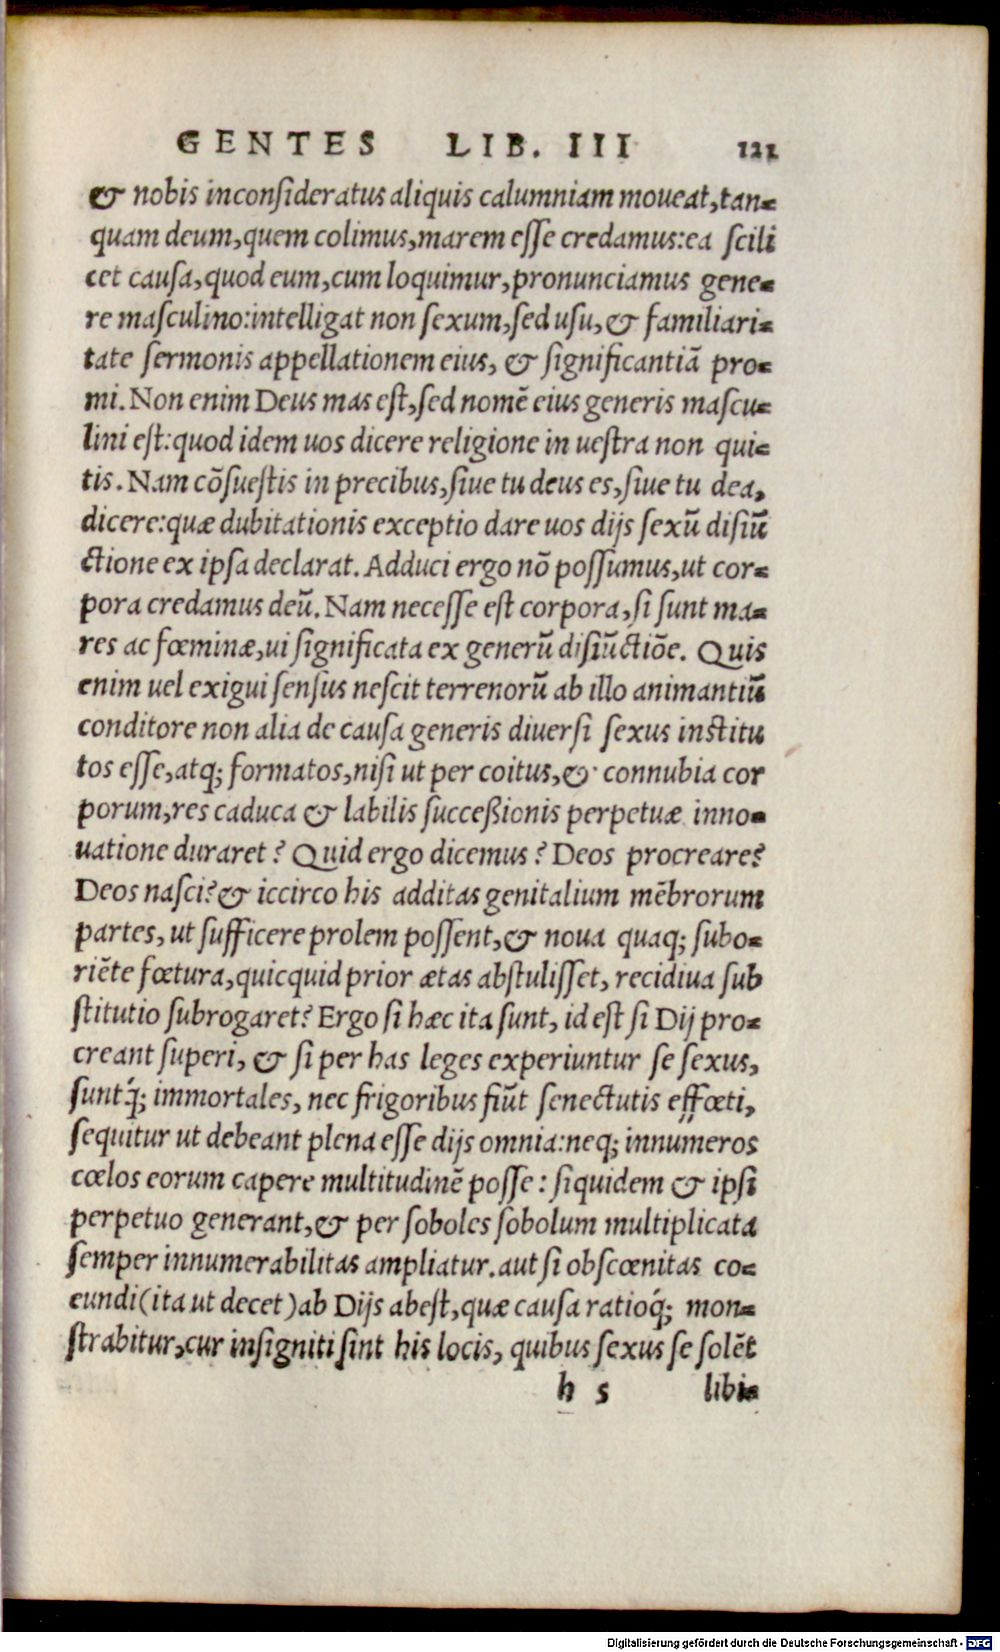 GENTES LIB. III 121
& nobis inconſideratus aliquis calumniam moueat,tan-
quam deum,quem colimus,marem eſſe credamus:ea ſcili
cet cauſa,quod eum,cum loquimur,pronunciamus gene-
re maſculino:intelligat non ſexum,ſed uſu,& familiari-
tate ſermonis appellationem eius, & ſignificantiā pro-
mi. Non enim Deus mas eſt,ſed nomē eius generis maſcu-
lini eſt:quod idem uos dicere religione in ueſtra non qui-
tis. Nam cōſueſtis in precibus,ſiue tu deus es,ſiue tu dea,
dicere:quæ dubitationis exceptio dare uos dijs ſexū diſiū
ctione ex ipſa declarat. Adduci ergo nō poſſumus,ut cor-
pora credamus deū. Nam neceſſe eſt corpora,ſi ſunt ma-
res ac fœminæ,ui ſignificata ex generū diſiūctiōe. Quis
enim uel exigui ſenſus neſcit terrenorū ab illo animantiū
conditore non alia de cauſa generis diuerſi ſexus inſtitu
tos eſſe,atq; formatos,niſi ut per coitus,& connubia cor
porum,res caduca & labilis ſucceßionis perpetuæ inno-
uatione duraret? Quid ergo dicemus? Deos procreare?
Deos naſci?& iccirco his additas genitalium mēbrorum
partes, ut ſufficere prolem poſſent,& noua quaq; ſubo-
riēte fœtura,quicquid prior ætas abſtuliſſet, recidiua ſub
ſtitutio ſubrogaret? Ergo ſi hæc ita ſunt, id eſt ſi Dij pro-
creant ſuperi, & ſi per has leges experiuntur ſe ſexus,
ſuntq́; immortales, nec frigoribus fiūt ſenectutis effœti,
ſequitur ut debeant plena eſſe dijs omnia:neq; innumeros
cœlos eorum capere multitudinē poſſe: ſiquidem & ipſi
perpetuo generant,& per ſoboles ſobolum multiplicata
ſemper innumerabilitas ampliatur. aut ſi obſcœnitas co-
eundi(ita ut decet)ab Dijs abeſt,quæ cauſa ratioq́; mon-
ſtrabitur,cur inſigniti ſint his locis, quibus ſexus ſe ſolēt
h s libi-
Digitalisierung gefördert durch die Deutsche Forschungsgemeinschaft - DFG